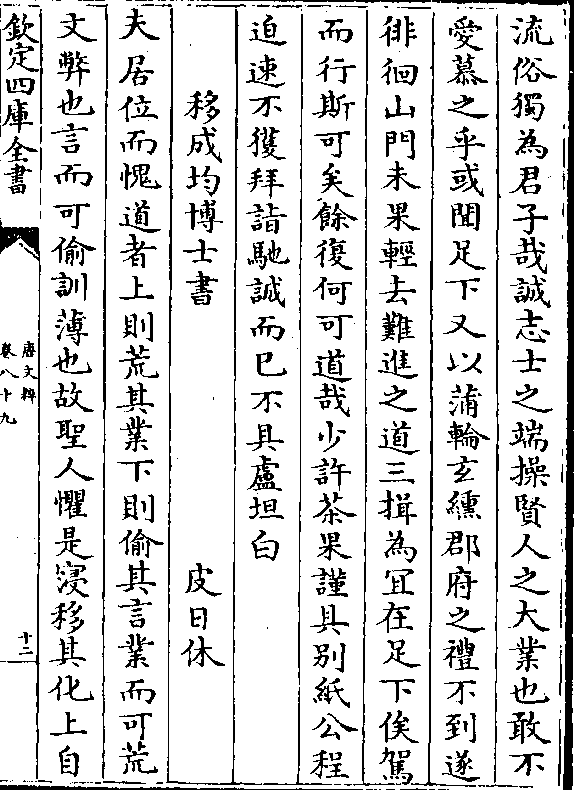 流俗獨為君子哉誠志士之端操賢人之大業也敢不
愛慕之乎或聞足下又以蒲輪玄纁郡府之禮不到遂
徘徊山門未果輕去難進之道三揖為宜在足下俟駕
而行斯可矣餘復何可道哉少許茶果謹具别紙公程
迫速不獲拜詣馳誠而已不具盧坦白
移成均博士書 皮日休
夫居位而愧道者上則荒其業下則偷其言業而可荒
文弊也言而可偷訓薄也故聖人懼是寖移其化上自
欽定四庫全書
唐文粹
卷八十九
十二